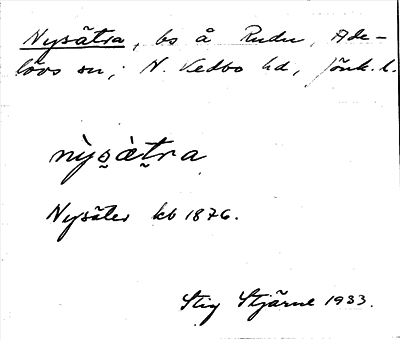 Nysätra, bs å Rudu, Ade-
lövs sn, N. Vedbo hd, Jönk. l.
nỳsætra
Nysäter kb 1876.
Stig Stjärne 1933.